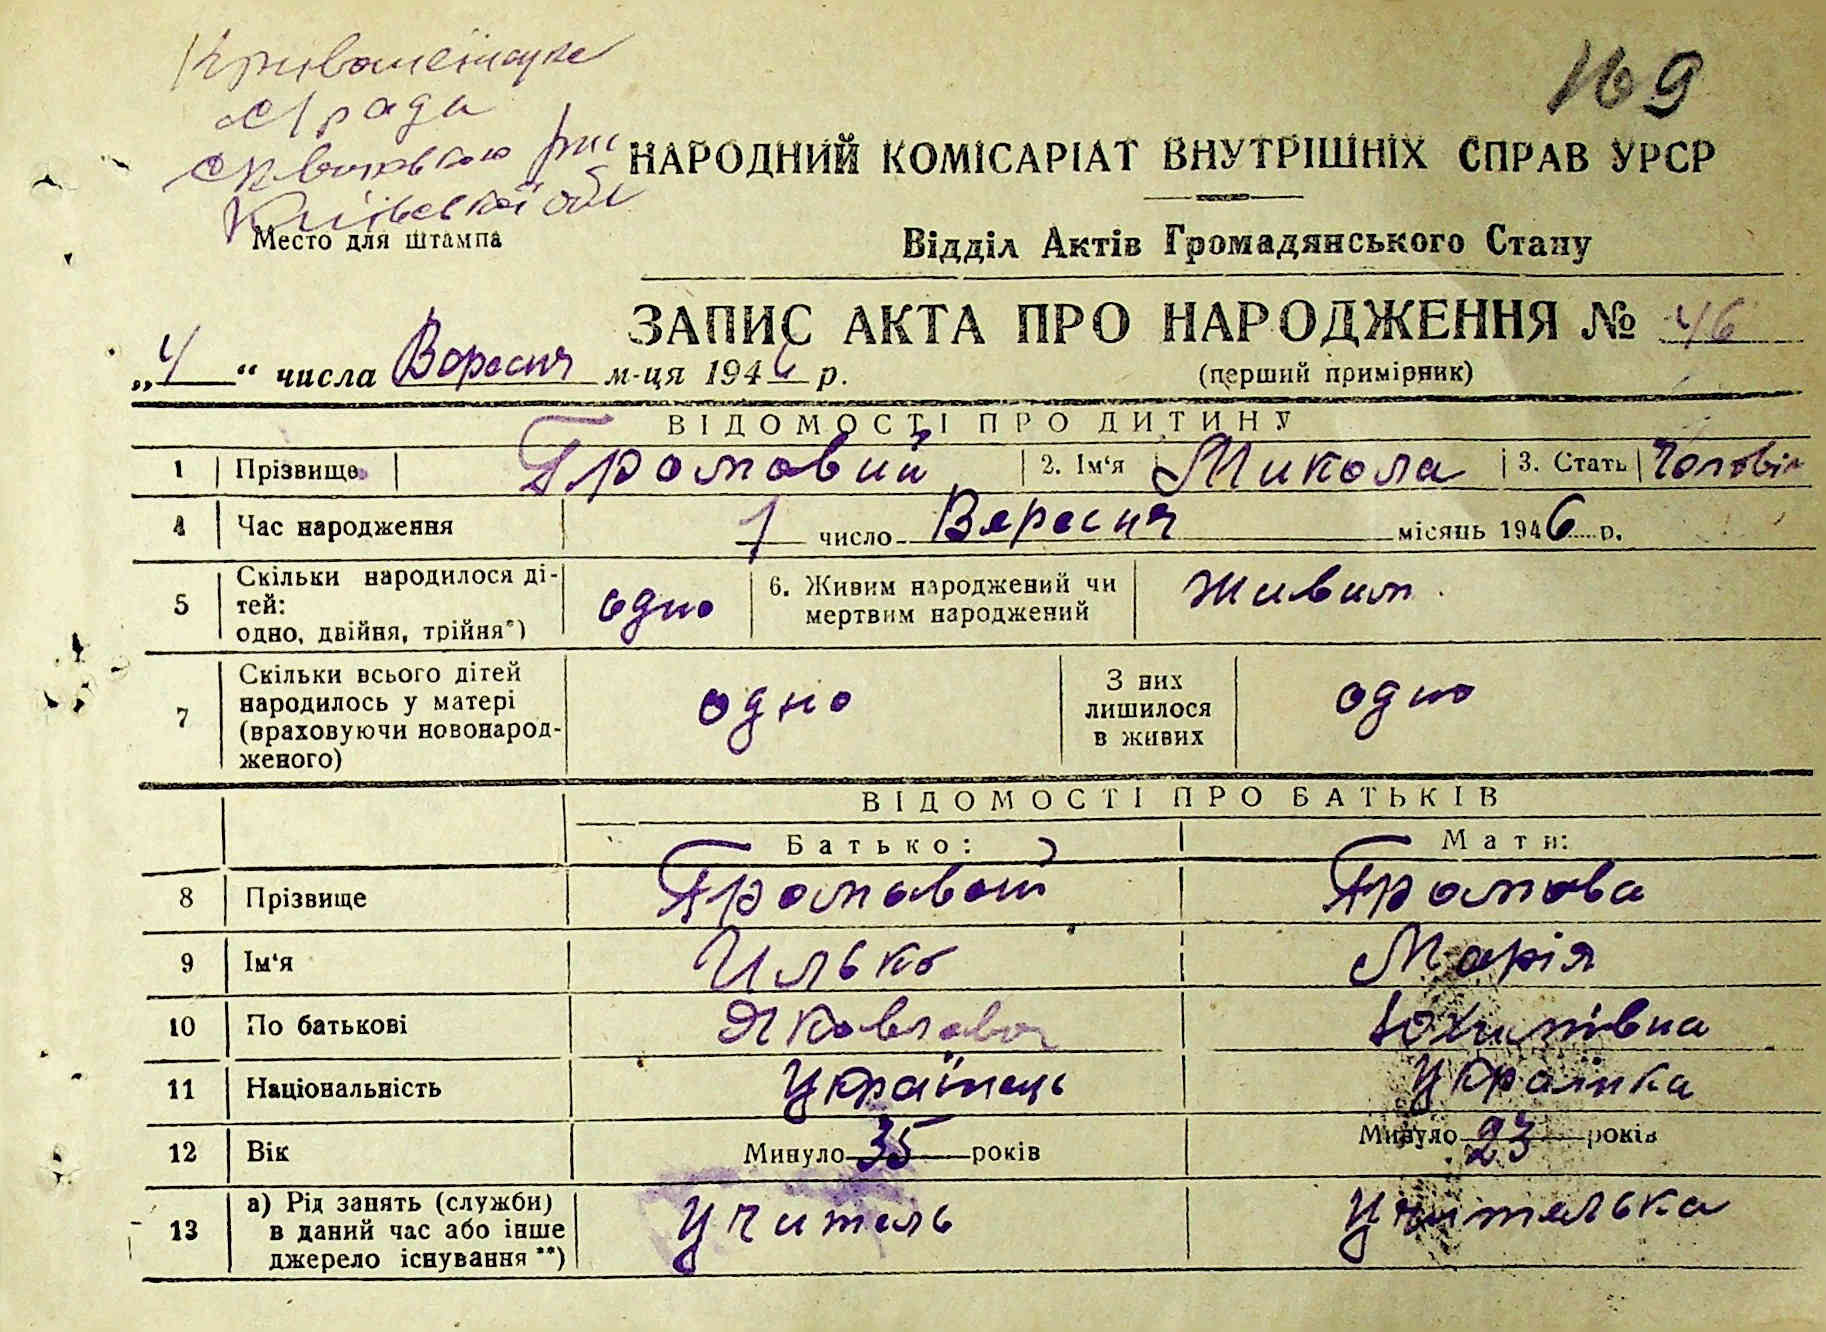 с/рада
Київської обл
169
НАРОДНИЙ КОМІСАРІАТ ВНУТРІШНІХ СПРАВ УРСР
Место для штампа
Відділ Актів Громадянського Стану
ЗАПИС АКТА ПРО НАРОДЖЕННЯ № 46
„4“ числа Вересня м-ця 1946 р.
(перший примірник)
ВІДОМОСТІ ПРО ДИТИНУ
1 Прізвище Громовий 2. Ім'я Микола 3. Стать Чоловіч
4 Час народження 1 число Вересня місянь 1946 р.
5 Скільки народилося ді-
тей:
одно, двійня, трійня*) одно 6. Живим народжений чи
мертвим народжений живим
7 Скільки всього дітей
народилось у матері
(враховуючи новонарод-
женого) одно З них
лишилося
в живих одно
ВІДОМОСТІ ПРО БАТЬКІВ
Батько: Мати:
8 Прізвище Громовой Громова
9 Ім'я Илько Марія
10 По батькові Яковлевич Юхимівна
11 Національність Українець Українка
12 Вік Минуло 35 років Минуло 23 років
13 а) Рід занять (служби)
в даний час або інше
джерело існування **) Учитель Учителька